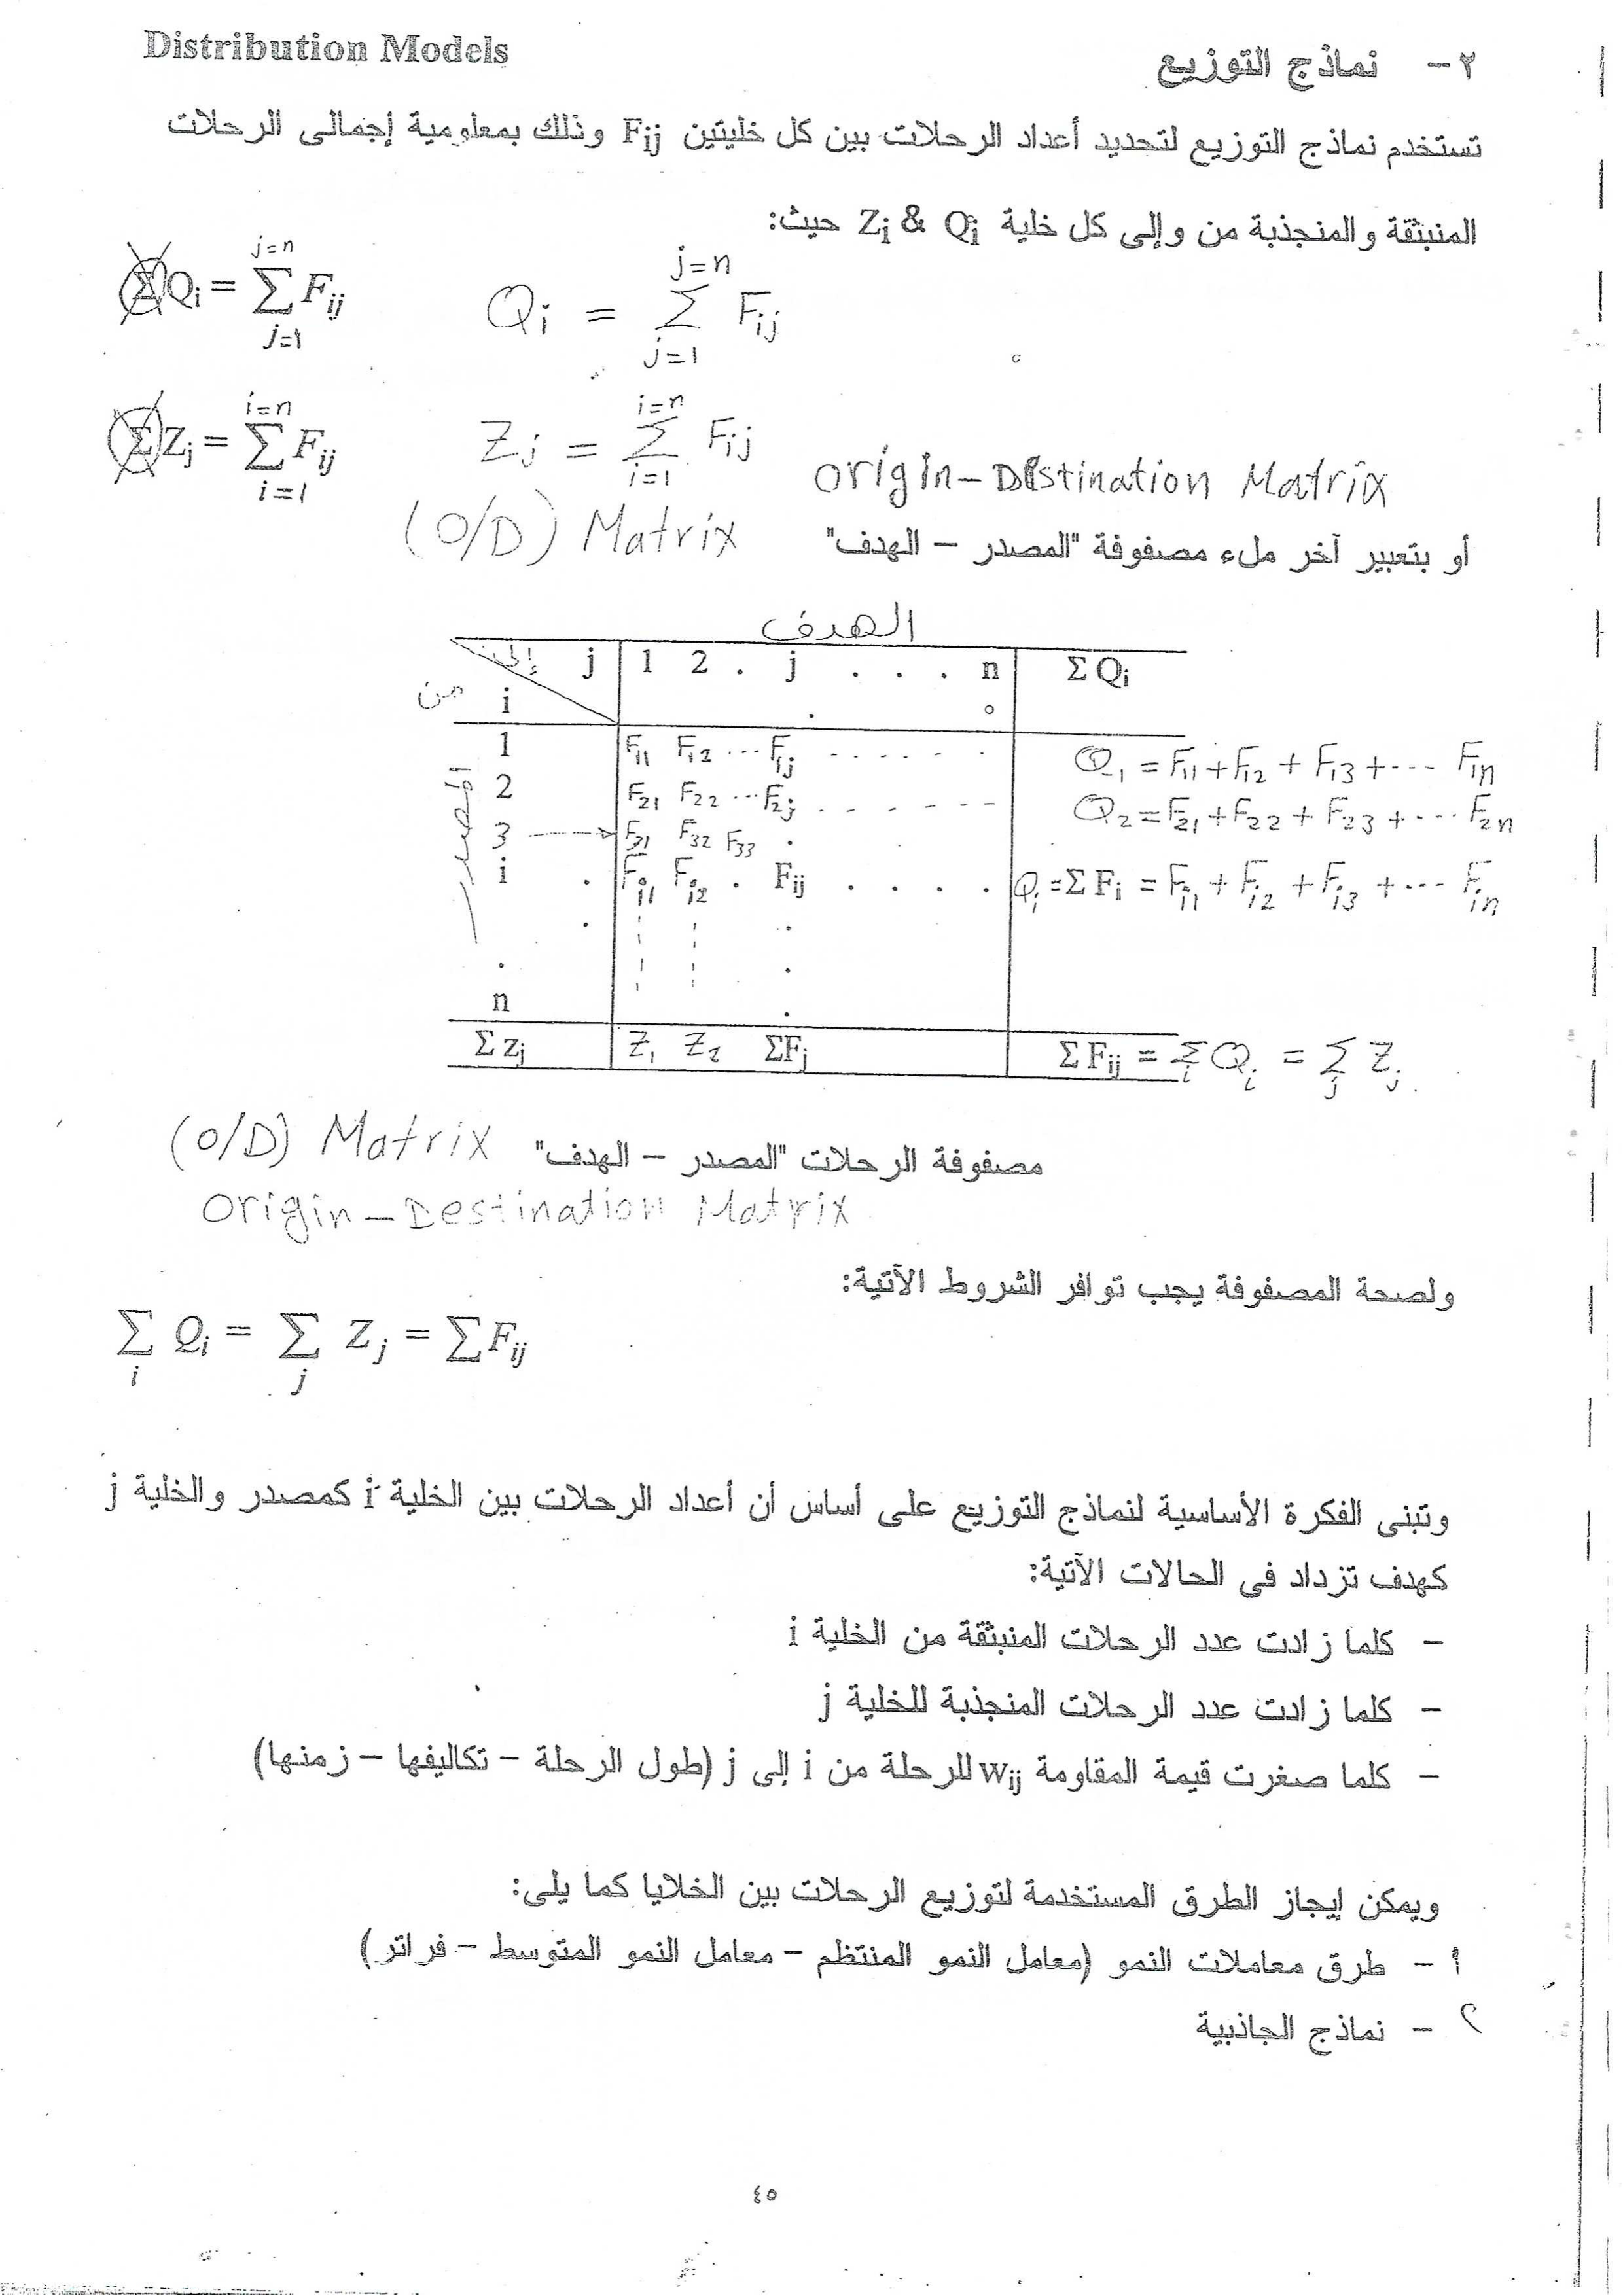 Distribution Models
٢- نماذج التوزيع
تستخدم نماذج التوزيع لتحديد أعداد الرحلات بين كل خليتين Fij وذلك بمعلومية إجمالى الرحلات
المنبثقة والمنجذبة من وإلى كل خلية Zj & Qi حيث:
j=n
Qi = ∑ Fij
j=1
j=n
Qi = ∑ Fij
j=1
i=n
Zj = ∑ Fij
i=1
i=n
Zj = ∑ Fij
i=1
Origin-Destination Matrix
(O/D) Matrix
أو بتعبير آخر ملء مصفوفة "المصدر – الهدف"
الهدف
إلى j 1 2 . j . . . n Σ Qi
من i
المصدر
1 F11 F12 ... F1j ...... Q1 = F11 + F12 + F13 + ... F1n
2 F21 F22 ... F2j ...... Q2 = F21 + F22 + F23 + ... F2n
3 F31 F32 F33 .
i . Fi1 Fi2 . Fij . . . . Qi = Σ Fi = Fi1 + Fi2 + Fi3 + ... Fin
n
Σ zj Z1 Z2 ΣFj Σ Fij = Σi Qi = Σj Zj
(O/D) Matrix مصفوفة الرحلات "المصدر – الهدف"
Origin-Destination Matrix
ولصحة المصفوفة يجب توافر الشروط الآتية:
∑i Qi = ∑j Zj = ∑Fij
وتبنى الفكرة الأساسية لنماذج التوزيع على أساس أن أعداد الرحلات بين الخلية i كمصدر والخلية j
كهدف تزداد فى الحالات الآتية:
- كلما زادت عدد الرحلات المنبثقة من الخلية i
- كلما زادت عدد الرحلات المنجذبة للخلية j
- كلما صغرت قيمة المقاومة wij للرحلة من i إلى j (طول الرحلة – تكاليفها – زمنها)
ويمكن إيجاز الطرق المستخدمة لتوزيع الرحلات بين الخلايا كما يلى:
١- طرق معاملات النمو (معامل النمو المنتظم – معامل النمو المتوسط – فراتر)
٢- نماذج الجاذبية
٤٥